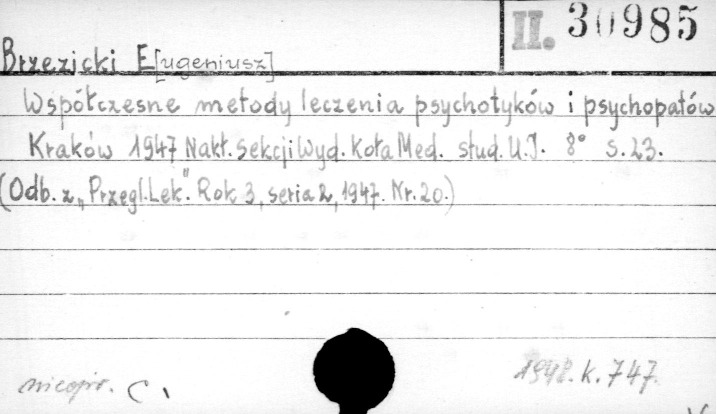 II. 30985
Brzezicki E[ugeniusz]
Współczesne metody leczenia psychotyków i psychopatów
Kraków 1947 Nakł. Sekcji Wyd. Koła Med. stud. U.J. 8° s. 23.
(Odb. z „Przegl. Lek". Rok 3, seria 2, 1947. Nr. 20.)
1948. k. 747.
nieopr. C